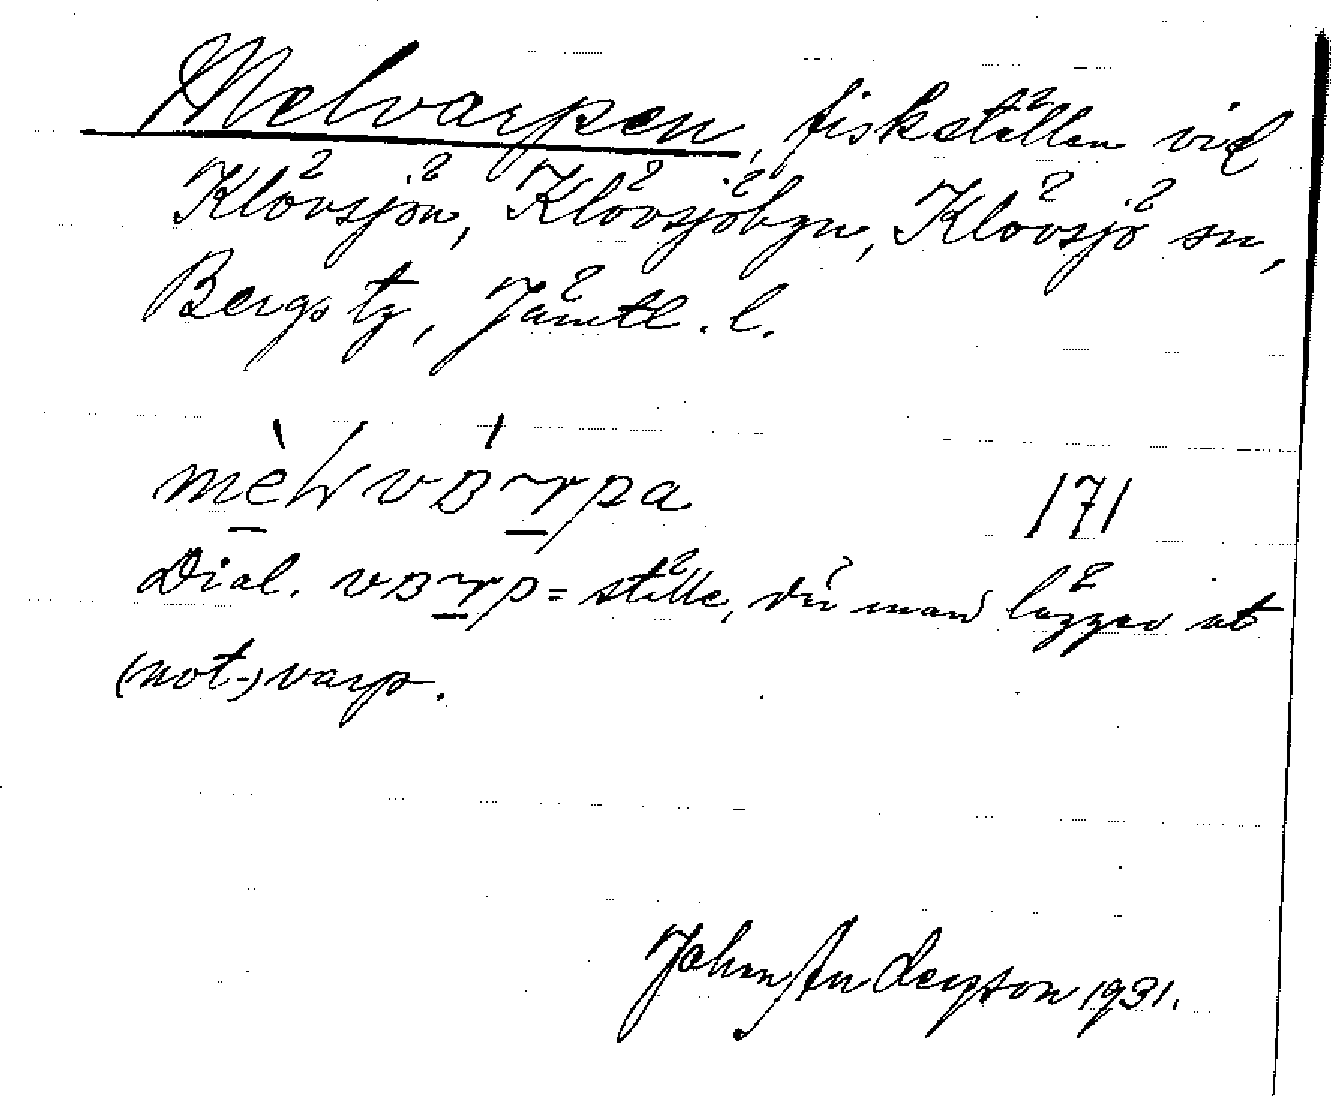 Melvarpen, fiskställen vid
Klövsjön, Klövsjöbyn, Klövsjö sn,
Bergs tg, Jämtl. l.
171
Dial. = ställe, där man lägger ut
(not-)varp.
John Anderson 1931.